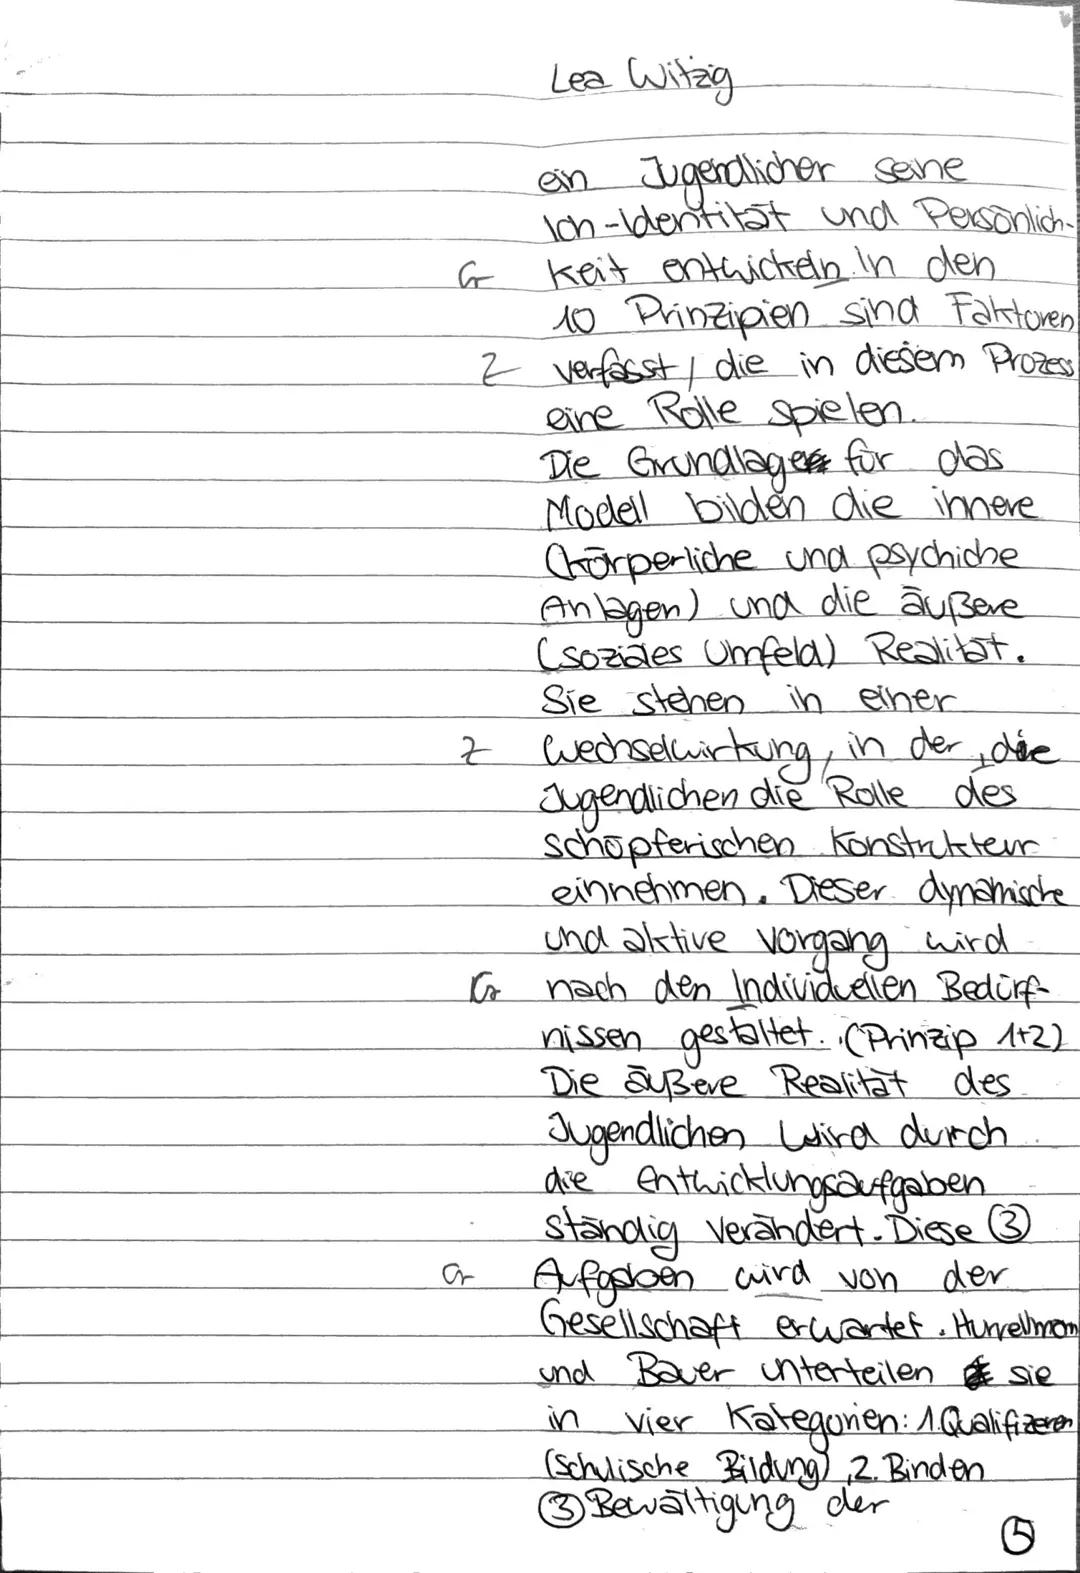 Lea Witzig
ein Jugendlicher seine
Ich-Identität und Persönlich-
Gr keit entwickeln. In den
10 Prinzipien sind Faktoren
Z verfasst, die in diesem Prozess
eine Rolle spielen.
Die Grundlage für das
Modell bilden die innere
(körperliche und psychiche
Anlagen) und die äußere
(soziales Umfeld) Realität.
Sie stehen in einer
Z Wechselwirkung, in der, die
Jugendlichen die Rolle des
schöpferischen Konstrukteur
einnehmen. Dieser dynamische
und aktive Vorgang wird
Gr nach den Individuellen Bedürf-
nissen gestaltet. (Prinzip 1+2)
Die äußere Realität des
Jugendlichen wird durch
die Entwicklungsaufgaben
ständig verändert. Diese ③
Gr Aufgaben wird von der
Gesellschaft erwartet. Hurrelmann
und Bauer unterteilen sie
in vier Kategorien: 1. Qualifizeren
(Schulische Bildung), 2. Binden
③ Bewältigung der
⑤